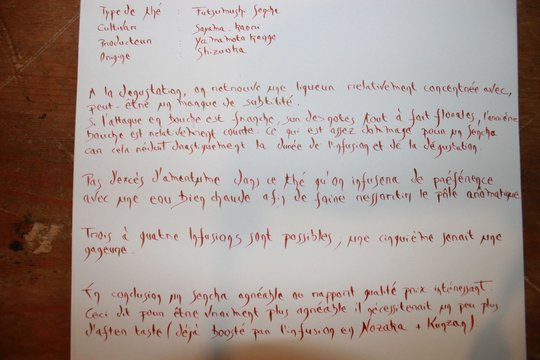 Type de thé : Futsumushi Sencha
Cultivar : Sayama-Kaori
Producteur : Yamamoto Kengo
Origine : Shizuoka
A la dégustation, on retrouve une liqueur relativement concentrée avec,
peut-être un manque de subtilité.
Si l'attaque en bouche est franche, sur des notes tout à fait florales, l'arrière
bouche est relativement courte. Ce qui est assez dommage pour un sencha
car cela réduit drastiquement la durée de l'infusion et de la dégustation.
Pas d'excès d'amertume dans ce thé qu'on infusera de préférence
avec une eau bien chaude afin de faire ressortir le pôle aromatique
Trois à quatre infusions sont possibles, une cinquième serait une
gageure.
En conclusion un sencha agréable au rapport qualité prix intéressant.
Ceci dit pour être vraiment plus agréable il nécessiterait un peu plus
d'after taste (déjà boosté par l'infusion en Nozaka + Kunzan).